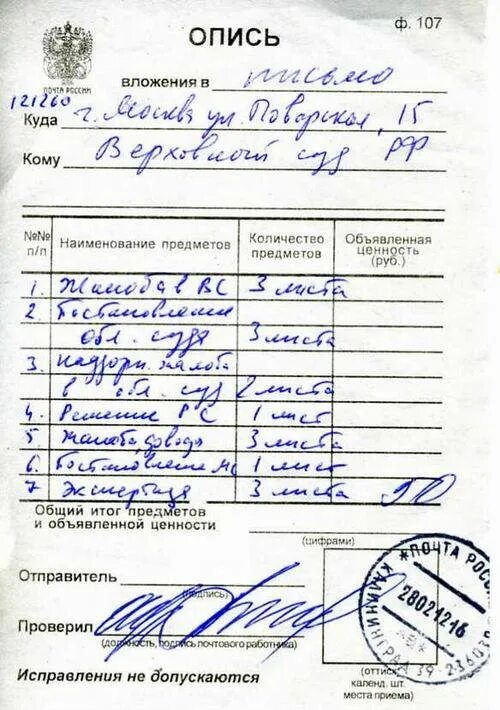 ф. 107
ОПИСЬ
ПОЧТА РОССИИ
вложения в письмо
121260
Куда г. Москва ул. Поварская, 15
Кому Верховный суд РФ
№№ п/п Наименование предметов Количество предметов Объявленная ценность (руб.)
1. Жалоба в ВС 3 листа
2. Постановление
обл. суда 3 листа
3. надзорн. жалоба
в обл. суд 2 листа
4. Решение РС 1 лист
5. Жалоба, доводы 3 листа
6. Постановление МС 1 лист
7 Экспертиза 3 листа
Общий итог предметов
и объявленной ценности
(цифрами)
Отправитель
(подпись)
Проверил
(должность, подпись почтового работника)
Исправления не допускаются
(оттиск
календ. шт.
места приема)
*ПОЧТА РОСС
28021216
КАЛИНИНГРАД 39-23603